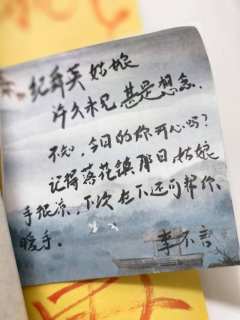 纪舜英姑娘
许久未见,甚是想念,
不知,今日的你开心吗?
记得落花镇那日姑娘
手很凉,下次在下还可帮你
暖手。
李不言